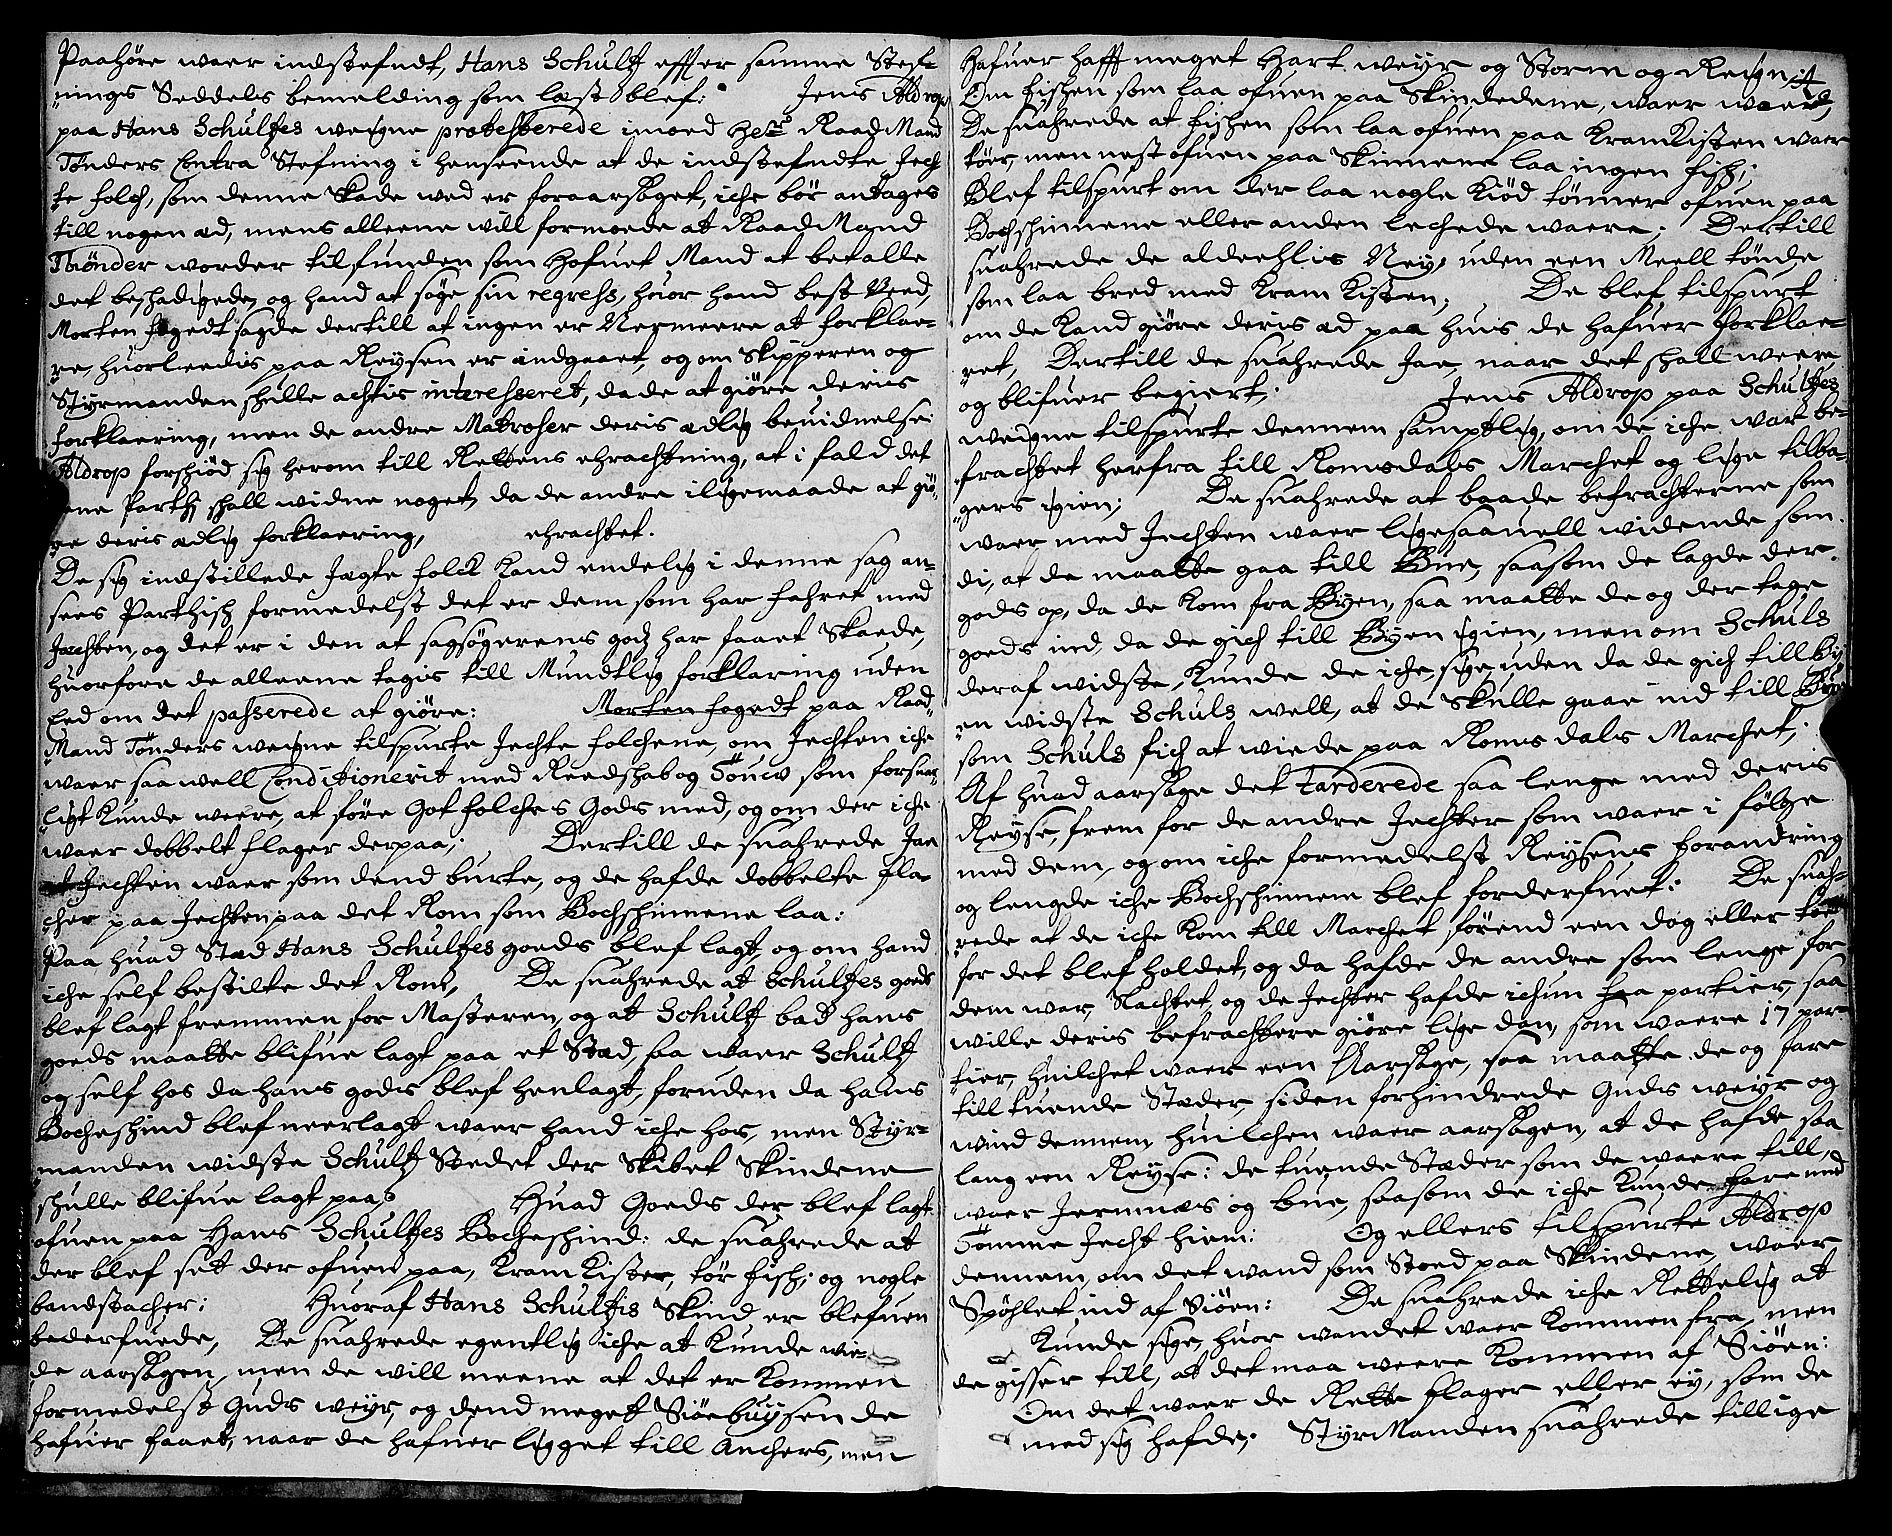 Paahöre waer indstefndt, Hans Schultz effter samme Stef-
nings Seddels bemelding som læst blef: Jens Aldrop
paa Hans Schultzes weigne protesterede imoed Her Raad Mand
Tönders Contra Stefning i henseende at de indstefndte Jech
te folch, som denne Skade wed er foraarsaget, iche bör andtages
till nogen æd, mens alleene will formoede at Raad Mand
Thönder worder tilfunden som Hofuet Mand at betalle
det beschadigede, og hand at söge sin regress, huor hand best Veed,
Morten fogedt sagde dertill at ingen er Nermeere at forklae-
re, huorleedis paa Reysen er indgaaet, og om Skipperen og
Styrmanden skulle achtis interesseret, da de at giöre deris
forklaering, men de andre Matroser deris ædlig beuidnelse:
Aldrop forskiöd sig herom till Rettens ehrachtning, at i fald det
ene Parth skall widne noget, da de andre iligemaade at giö-
re deris ædlig forklaering, ehrachtet.
De sig indstillede Jagte folck kand endelig i denne sag an-
sees Parthisk formedelst det er dem som har fahret med
Jachten, og det er i den at sagsögerens godz har faaet Skaede,
huorfore de alleene tagis till Mundtlig forklaring uden
Eed om det passerede at giöre: Morten fogedt paa Raad
Mand Tönders weigne tilspurte Jechte folchene, om Jechten iche
waer saa well Conditionerit med Reedskab og Töuew som forsuar-
ligt kunde weere, at före Got folches Gods med, og om der iche
waer dobbelt flager derpaa; Dertill de suahrede Jaa
at Jechten waer som dend burte, og de hafde dobbelte fla-
cher paa Jechten paa det Rom som Bochskinnene laa:
Paa huad Stæd Hans Schultzes goeds blef lagt, og om hand
iche self bestilte det Rom, De suahrede at Schultzes goeds
blef lagt fremmen for Masteren, og at Schultz bad hans
goeds maatte blifue lagt paa et Stæd, saa waer Schultz
og self hos da hans gods blef henlagt, foruden da hans
Bocheskind blef neerlagt waer hand iche hos, men Styr-
manden widste Schultz Stedet der Skibet Skindene
skulle blifue lagt paa, Huad Goeds der blef lagt
ofuen paa Hans Schultzes Bocheskind: de suahrede at
der blef sat der ofuen paa, Kram Kister, tör fisk; og nogle
bandstacher; Huoraf Hans Schultzis Skind er blefuen
bederfuede, De suahrede egentlig iche at kunde wi-
de aarsagen, men de will meene at det er kommen
formedelst Guds weyr, og dend meget Siöebuysen de
hafuer faaet, naar de hafuer ligget till Anchers, men
Hafuer hafft meget Hart weyr og Storm og Reign;
Om fisken som laa ofuen paa Skindedene, waer waed,
De suahrede at fisken som laa ofuen paa Kramkisten waer
tör, men nest ofuen paa Skinnene laa ingen fisk;
Blef tilspurt om der laa nogle Kiöd tönner ofuen paa
Bochskinnene eller anden lechede waere; Dertill
suahrede de aldeehlis Ney, uden een Meell tönde
som laa bred med Kram Kisten; De blef tilspurt
om de kand giöre deris æd paa huis de hafuer forklae-
ret, Dertill de suahrede Jae, naar det skall weere
og blifuer begiert; Jens Aldrop paa Schultzes
weigne tilspurte dennem samptlig, om de iche war be-
frachtet herfra till Romsdals Marchet og lige tilba-
gers igien; De suahrede at baade befrachterne som
waer med Jechten waer ligesaauell widende som
di, at de maatte gaa till Bue, saasom de lagde der
gods op, da de kom fra Byen, saa maatte de og der tage
goeds ind, da de gich till Byen igien, men om Schuls
deraf widste, kunde de iche sige, uden da de gich till By
en widste Schuls well, at de Skulle gaae ind till Bue
som Schuls fich at wiede paa Romsdals Marchet;
Af huad aarsage det tarderede saa lenge med deris
Reyse, frem for de andre Jechter som waer i fölge
med dem, og om iche formedelst Reysens forandring
og lengde iche Bochskinnene blef forderfuet; De suah-
rede at de iche kom till Marchet förend een dag eller
for det blef holdet, og da hafde de andre som lenge for
dem war, Rachtet, og de Jechter hafde ichun faa partier, saa
wille deris befrachtere giöre lige dan, som waere 17 par
tier, huilchet waer een Aarsage, saa maatte de og fare
till tuende Stæder, siden forhindrede Guds weyr og
wind dennem, huilchen waer aarsagen, at de hafde saa
lang een Reyse: de tuende Stæder som de waere till,
waer Jermnæs og bue, saasom de iche kunde fare med
Tömme Jecht hiem: Og ellers tilspurte Aldrop
dennem, om det wand som Stoed paa Skindene, waer
Spöhlet ind af Siöen: De suahrede iche Rettelig at
kunde sige, huor wandet waer kommen fra, men
de gisser till, at det maa weere kommen af Siöen:
Om det waer de Rette flager eller ey, som de
med sig hafde; Styrmanden suahrede tillige